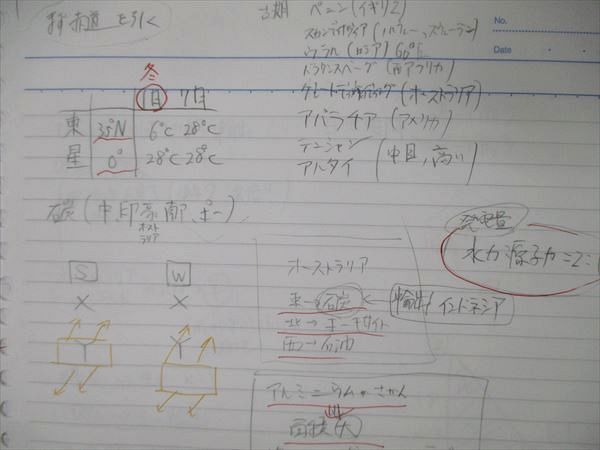 赤道を引く
古期 ペニン(イギリス)
スカンディナヴィア(ノルウェー、スウェーデン)
ウラル(ロシア) 60°E
ドラケンスバーグ(南アフリカ)
グレートディヴァイディング(オーストラリア)
アパラチア(アメリカ)
テンシャン
アルタイ
(中国、高い)
No.
Date
冬
1月 7月
東 35°N 6℃ 28℃
星 0° 28℃ 28℃
石炭(中印豪南ポー)
オースト
ラリア
S W
オーストラリア
東→石炭 ← 輸出 インドネシア
北→ボーキサイト
西→石油
発電量
水力:原子力=2:
アルミニウムさかん
面積(大)